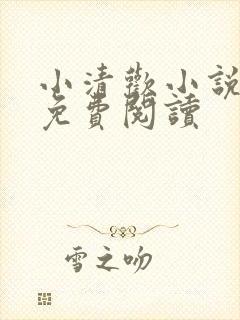 小清歡小説
免費閱讀
雪之吻